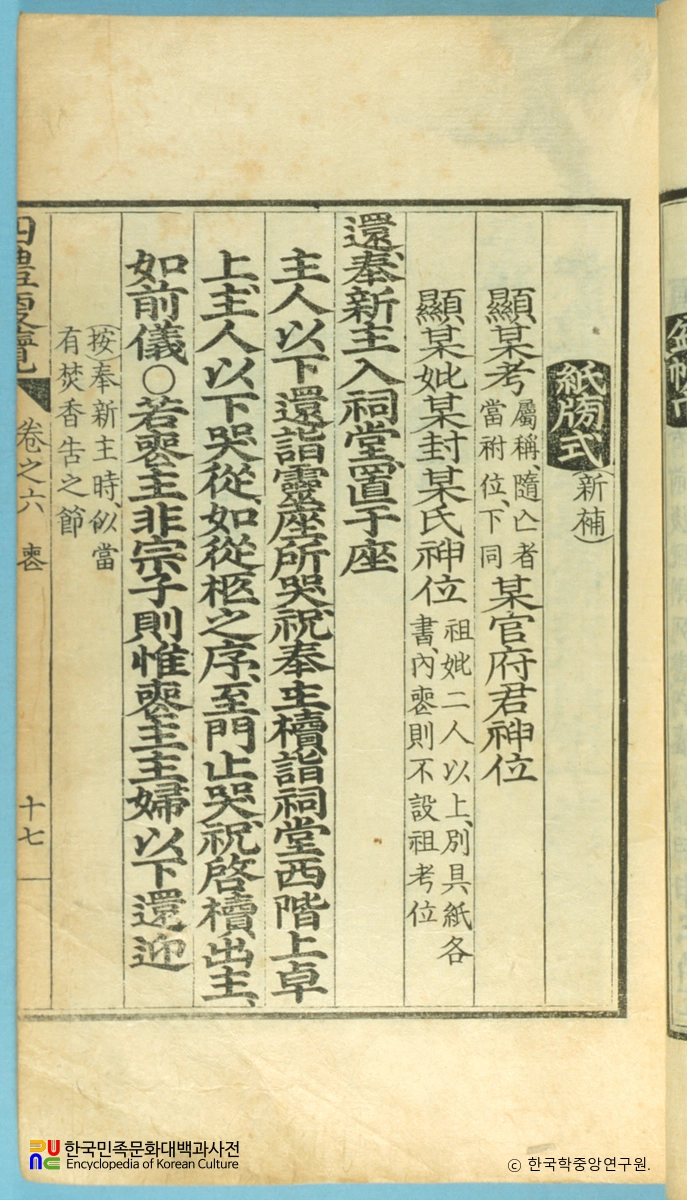 紙牓式（新補）
顯某考屬稱、隨亡者當祔位、下同某官府君神位
顯某妣某封某氏神位祖妣二人以上、別具紙各書、內喪則不設祖考位
還、奉新主入祠堂、置于座
主人以下還詣靈座所哭、祝奉主櫝、詣祠堂西階上卓
上、主人以下哭從、如從柩之序、至門止哭、祝啓櫝出主、
如前儀○若喪主非宗子則惟喪主主婦以下還迎
（按）奉新主時、似當
有焚香告之節
四禮便覽 卷之六 喪 十七
한국민족문화대백과사전
Encyclopedia of Korean Culture
ⓒ 한국학중앙연구원.